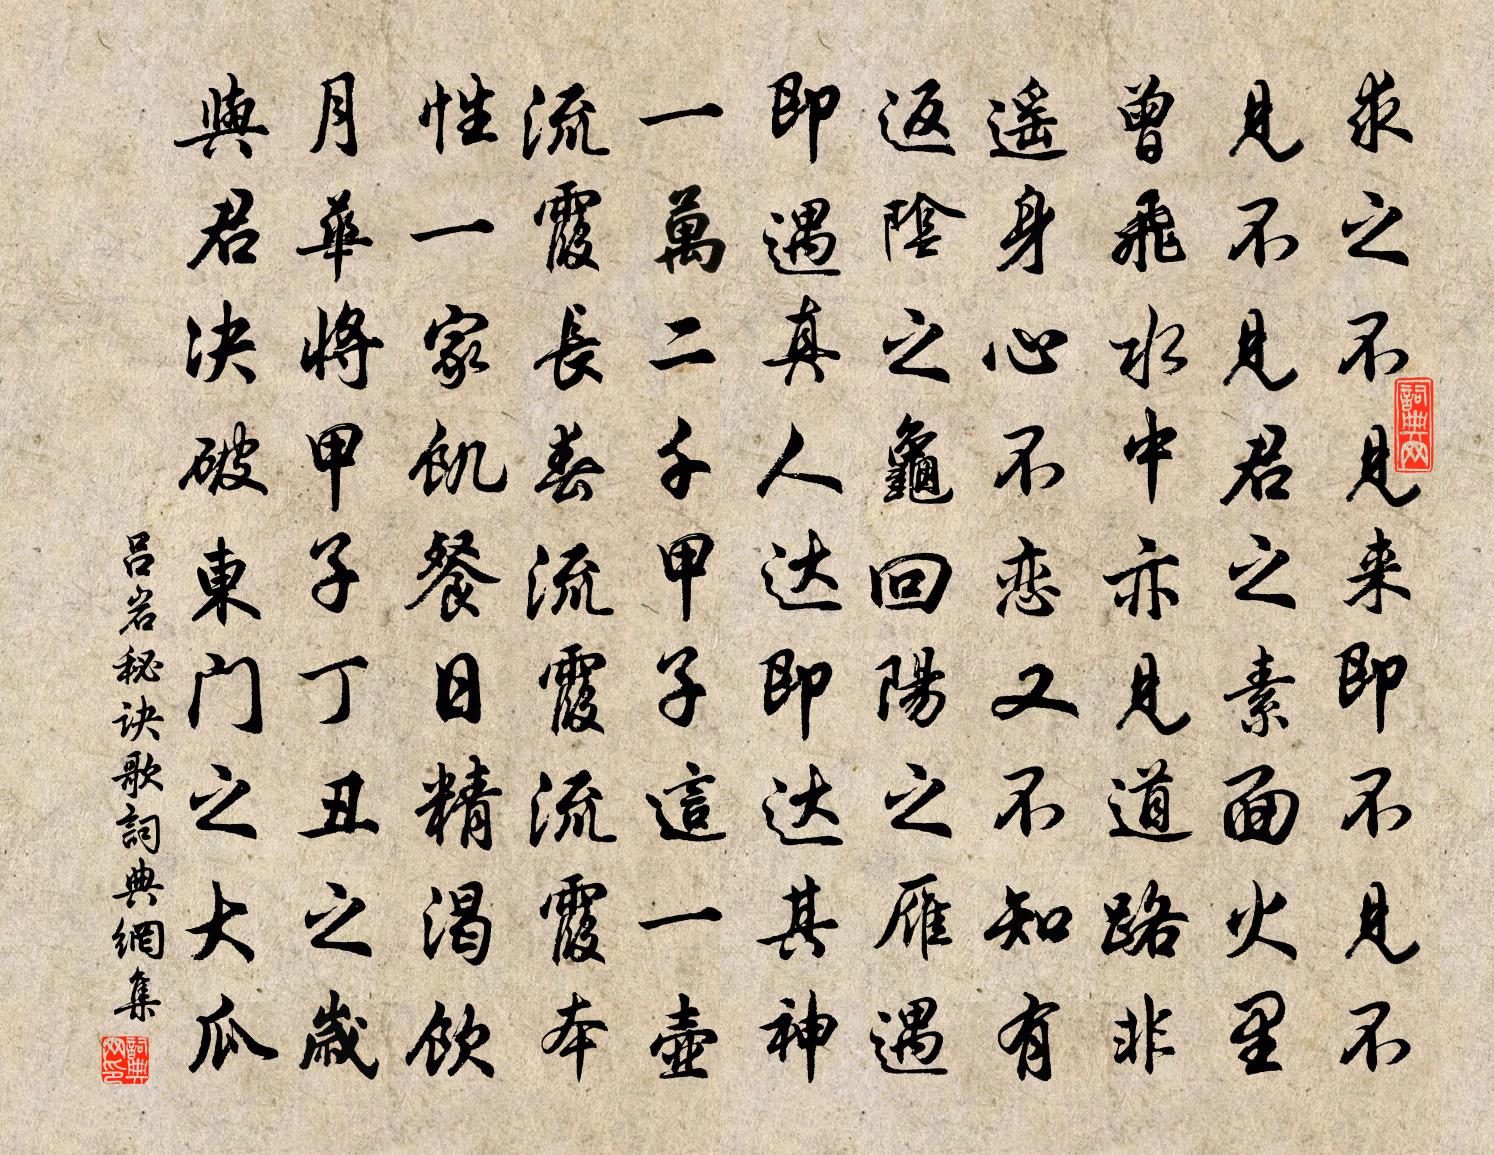 求之不見来即不見不
見不見君之素面火里
曾飛水中亦見道路非
遥身心不恋又不知有
返陰之龜回陽之雁遇
即遇真人达即达其神
一萬二千甲子這一壺
流霞長春流霞流霞本
性一家飢餐日精渴飲
月華將甲子丁丑之歲
與君决破東門之大瓜
吕岩秘诀歌詞典網集
詞典网
詞典网印